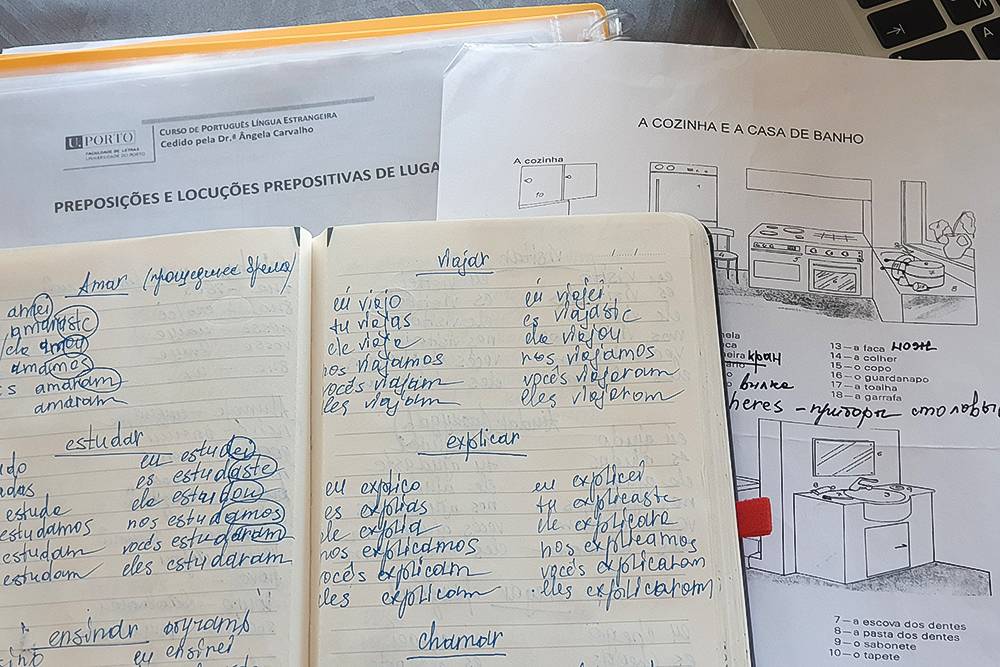 U.PORTO
FACULDADE DE LETRAS
UNIVERSIDADE DO PORTO
CURSO DE PORTUGUÊS LÍNGUA ESTRANGEIRA
Cedido pela Dr.ª Ângela Carvalho
PREPOSIÇÕES E LOCUÇÕES PREPOSITIVAS DE LUGA
A COZINHA E A CASA DE BANHO
A cozinha
10
13 – a faca нож
14 – a colher
15 – o copo
16 – o guardanapo
17 – a toalha
18 – a garrafa
кран
вилка
heres – приборы столовы
7 – a escova dos dentes
8 – a pasta dos dentes
9 – o sabonete
10 – o tapete
Amar (прошедшее время)
amei
amaraste
ele amou
amamos
amaram
amaram
estudar
estuda
estudamos
estudam
estudam
eu estudei
es estudaste
ele estudou
nos estudamos
vocês estudaram
eles estudaram
ensinar
eu ensinei
viajar
eu viajo
tu viajas
ele viaja
nos viajamos
vocês viajam
eles viajam
eu viajei
es viajaste
ele viajou
nos viajamos
vocês viajaram
eles viajaram
explicar
eu explico
es explias
ele explia
nos explicamos
vocês explicam
eles explicam
eu explicei
tu explicaste
ele explicara
nos explicamos
vocês explicaram
eles explicaram
chamar